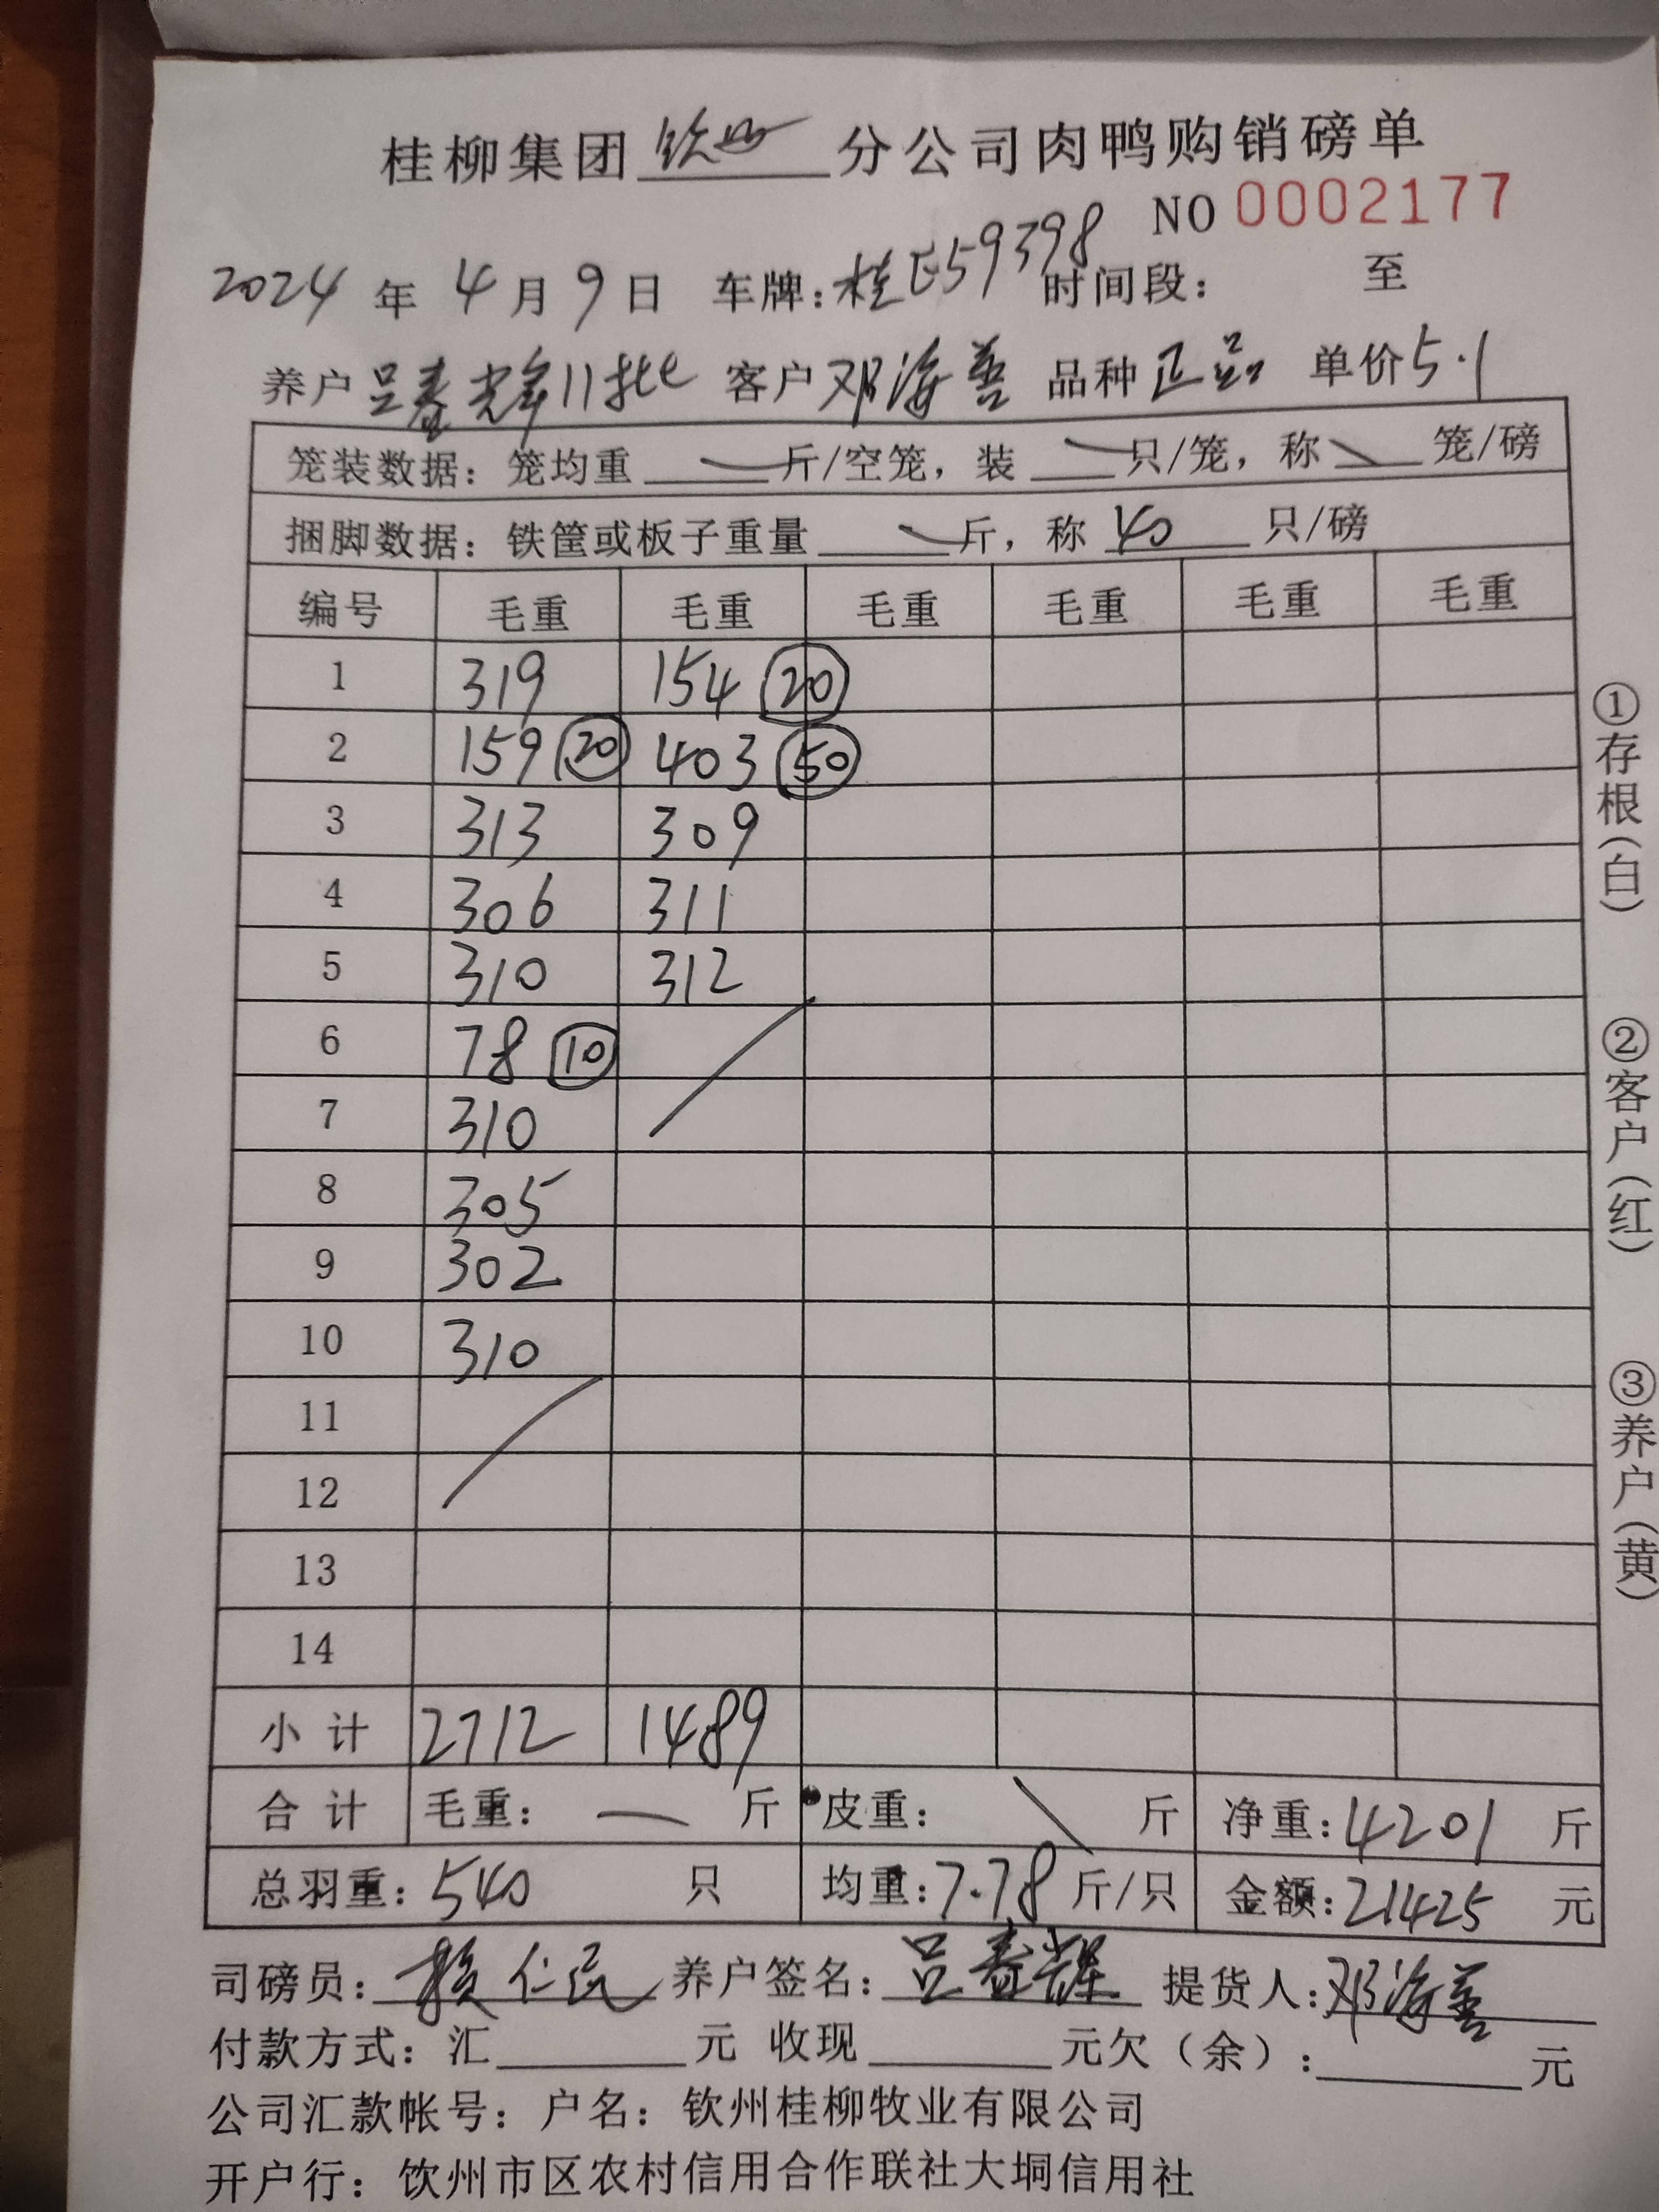 桂柳集团 钦州 分公司肉鸭购销磅单
NO 0002177
2024 年 4 月 9 日 车牌:桂E59398 时间段: 至
养户 吕春辉11批 客户 邓海善 品种 正品 单价 5.1
笼装数据:笼均重 斤/空笼,装 只/笼,称 笼/磅
捆脚数据:铁筐或板子重量 斤,称 40 只/磅
编号 毛重 毛重 毛重 毛重 毛重 毛重
1 319 154 20
2 159 20 403 50
3 313 309
4 306 311
5 310 312
6 78 10
7 310
8 305
9 302
10 310
11
12
13
14
小计 2712 1489
合计 毛重: 一 斤 皮重: 斤 净重:4201 斤
总羽重:540 只 均重:7.78 斤/只 金额:21425 元
司磅员: 仁民 养户签名:吕春辉 提货人:邓海善
付款方式:汇 元 收现 元欠(余): 元
公司汇款帐号:户名:钦州桂柳牧业有限公司
开户行:钦州市区农村信用合作联社大垌信用社
①存根(白)
②客户(红)
③养户(黄)